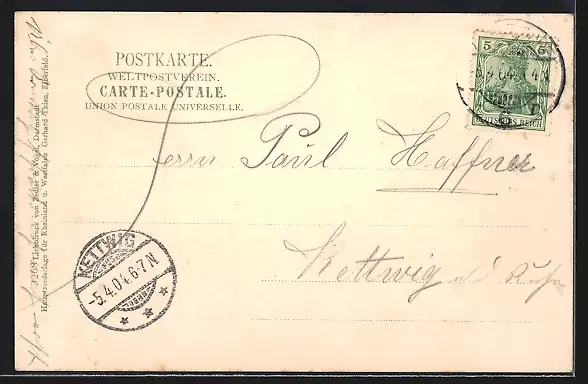 POSTKARTE.
WELTPOSTVEREIN.
CARTE-POSTALE.
UNION POSTALE UNIVERSELLE.
5 5
DEUTSCHES REICH
5.4.04
Herrn Paul Haffner
Kettwig a/d Ruhr
KETTWIG
-5.4.04.6-7.N
4268 Lichtdruck von Zedler & Vogel, Darmstadt
Hauptniederlage für Rheinland u. Westfalen Gerhard Thien, Elberfeld.